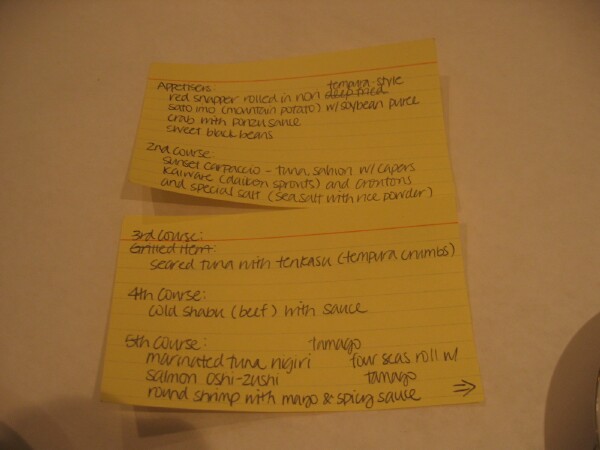 Appetisers: tempura-style
red snapper rolled in nori deep fried
sato imo (mountain potato) w/ soybean puree
crab with ponzu sauce
sweet black beans
2nd course:
sunset carpaccio - tuna, salmon w/ capers
kaiware (daikon sprouts) and croutons
and special salt (sea salt with rice powder)
3rd course:
Grilled item:
seared tuna with tenkasu (tempura crumbs)
4th course:
cold shabu (beef) with sauce
5th course: Tamago
marinated tuna nigiri four seas roll w/
salmon oshi-zushi tamago
round shrimp with mayo & spicy sauce →